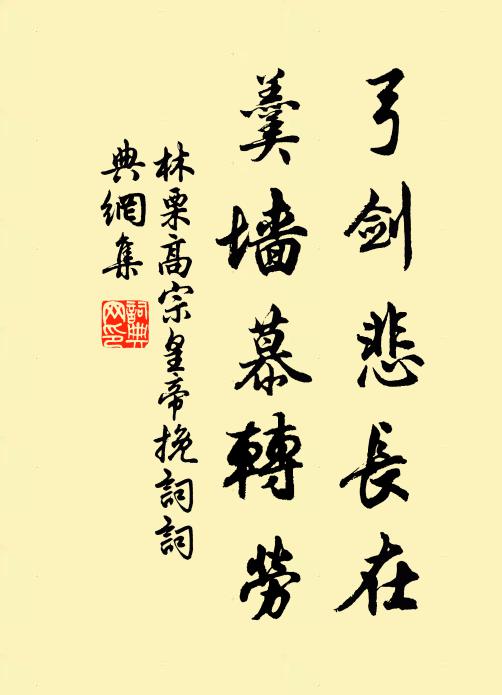 弓劍悲長在
羹墻慕轉勞
林栗高宗皇帝挽詞詞
典網集
詞典
网印